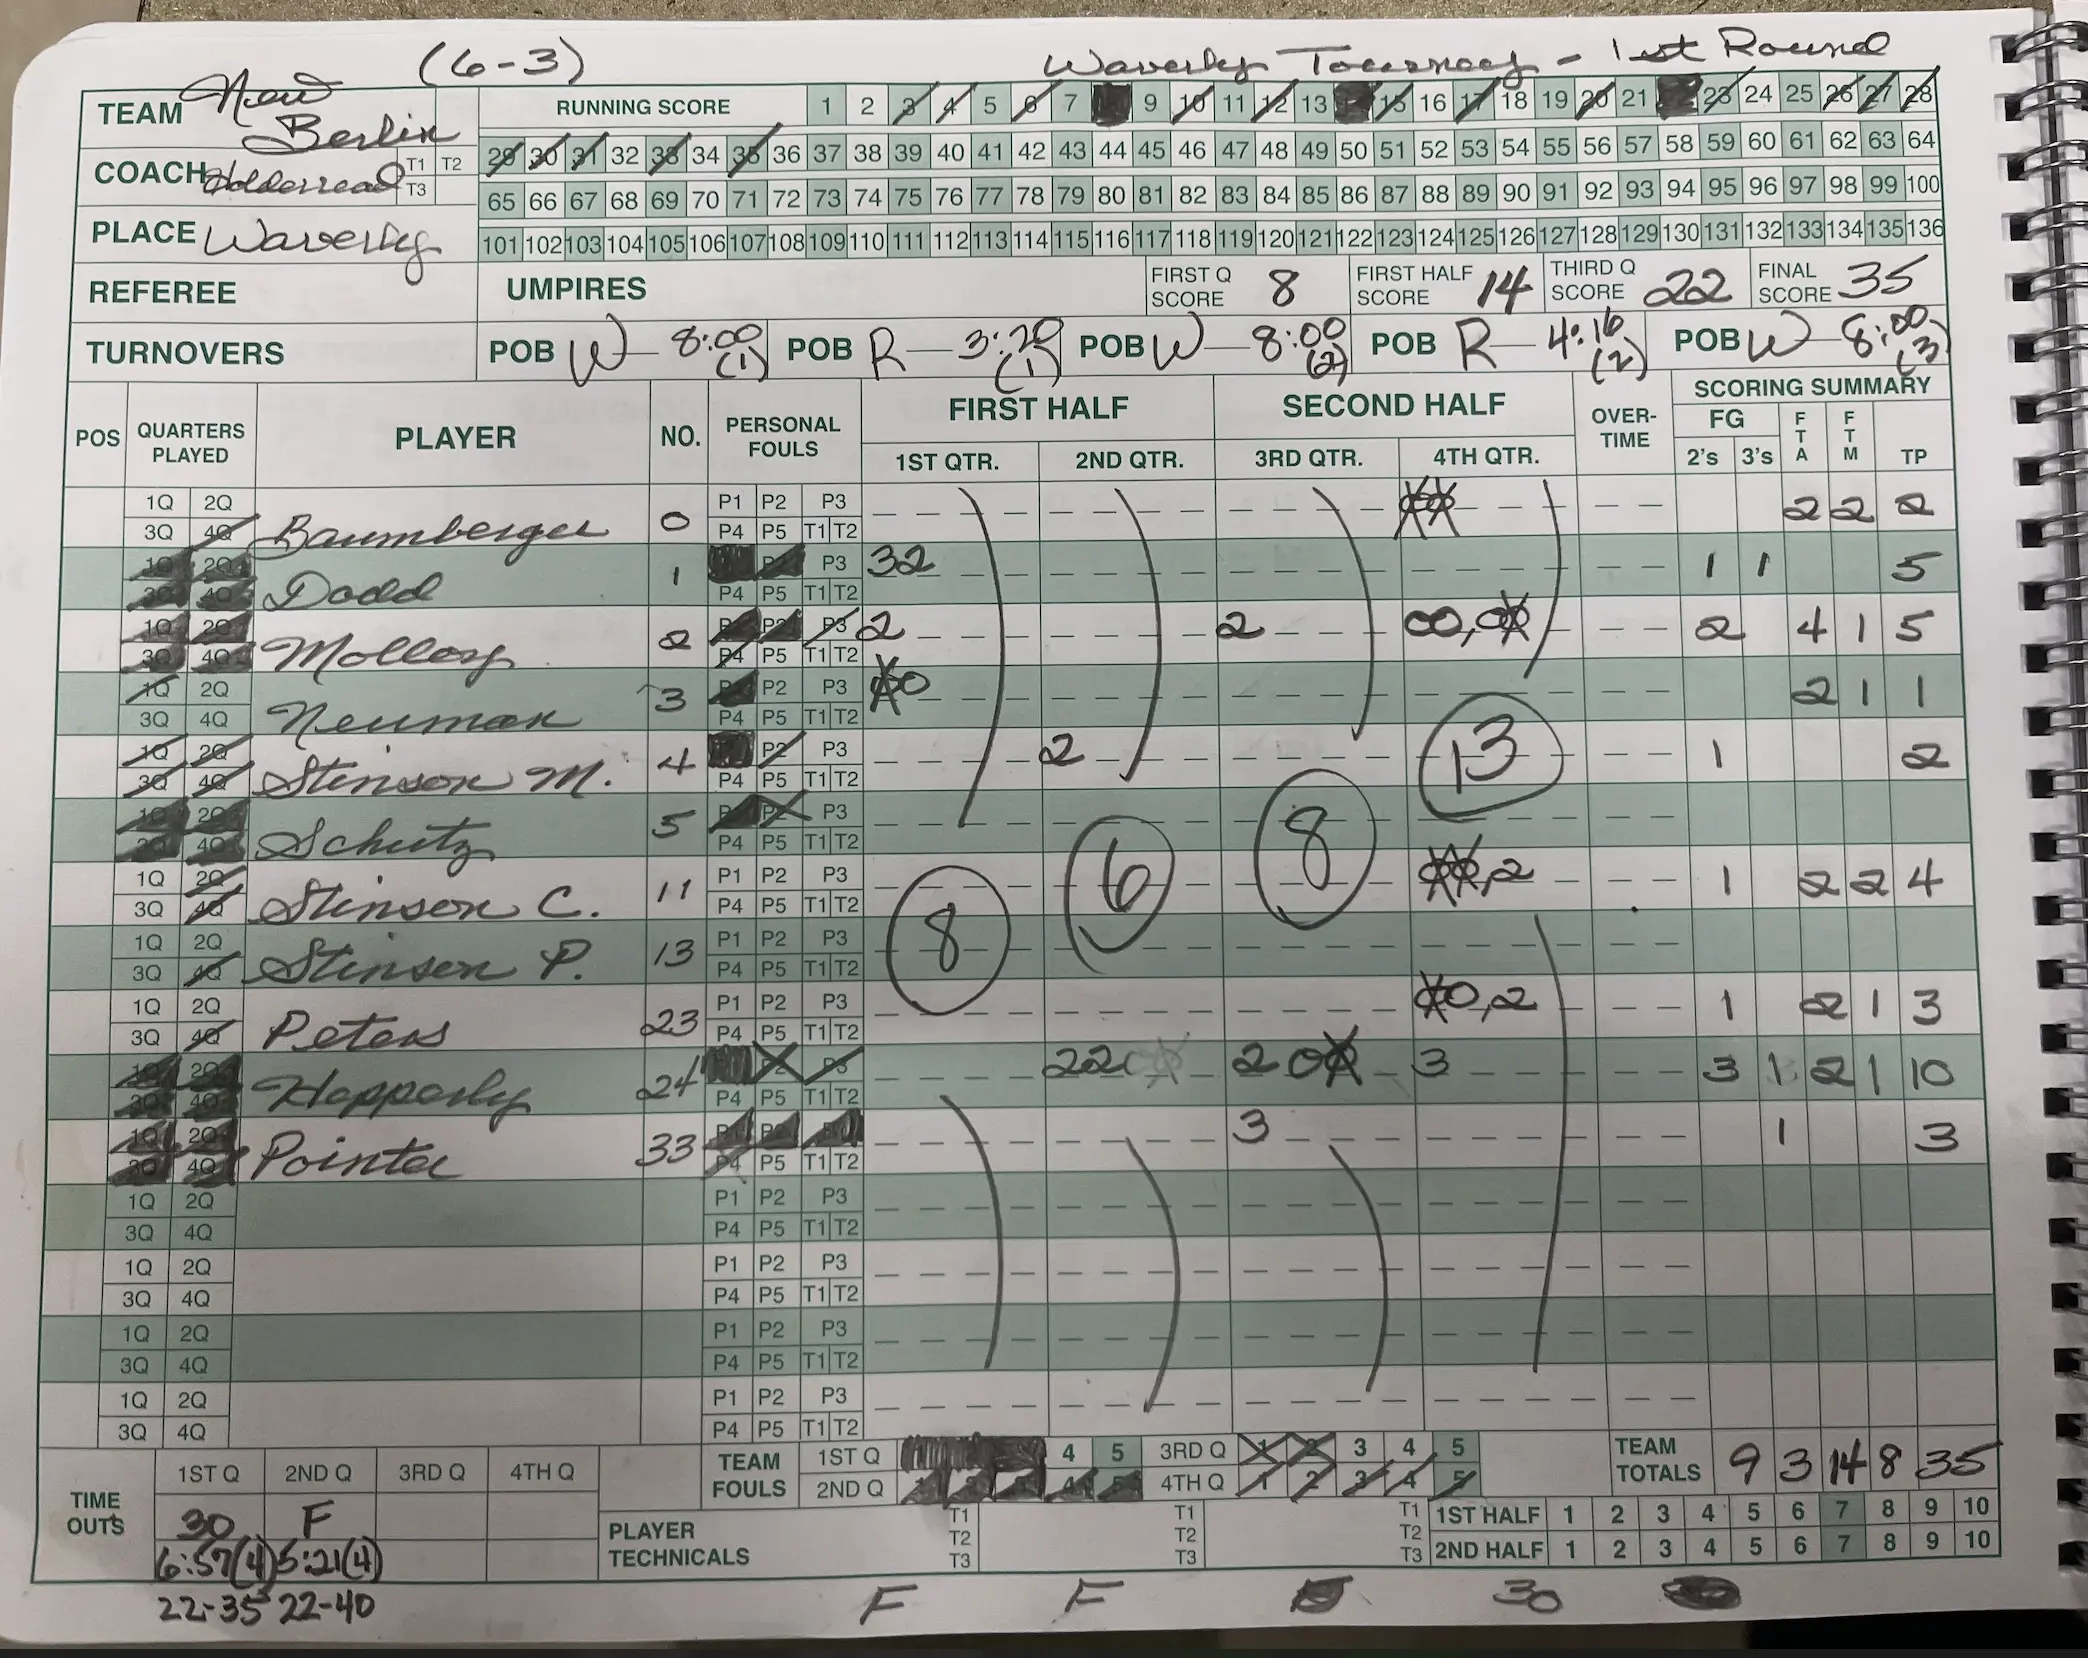 (6-3) Waverly Tourney - 1st Round
TEAM New Berlin
RUNNING SCORE 1 2 3 4 5 6 7 9 10 11 12 13 15 16 17 18 19 20 21 23 24 25 26 27 28
29 30 31 32 33 34 35 36 37 38 39 40 41 42 43 44 45 46 47 48 49 50 51 52 53 54 55 56 57 58 59 60 61 62 63 64
COACH T1 T2 T3
65 66 67 68 69 70 71 72 73 74 75 76 77 78 79 80 81 82 83 84 85 86 87 88 89 90 91 92 93 94 95 96 97 98 99 100
PLACE Waverly
101 102 103 104 105 106 107 108 109 110 111 112 113 114 115 116 117 118 119 120 121 122 123 124 125 126 127 128 129 130 131 132 133 134 135 136
REFEREE UMPIRES FIRST Q SCORE 8 FIRST HALF SCORE 14 THIRD Q SCORE 22 FINAL SCORE 35
TURNOVERS POB W - 8:00 (1) POB R - 3:20 (1) POB W - 8:00 (2) POB R - 4:16 (2) POB W - 8:00 (3)
POS QUARTERS PLAYED PLAYER NO. PERSONAL FOULS FIRST HALF SECOND HALF OVER-TIME SCORING SUMMARY
1ST QTR. 2ND QTR. 3RD QTR. 4TH QTR. FG 2's 3's FTA FTM TP
1Q 2Q P1 P2 P3
3Q 4Q Baumberger 0 P4 P5 T1 T2 2 2 2
1Q 2Q P2 P3
3Q 4Q Dodd 1 P4 P5 T1 T2 32 1 1 5
1Q 2Q P2 P3
3Q 4Q Molloy 2 P4 P5 T1 T2 2 2 00,0 2 4 1 5
1Q 2Q P2 P3
3Q 4Q Neuman 3 P4 P5 T1 T2 0 2 1 1
1Q 2Q P2 P3
3Q 4Q Stinson M. 4 P4 P5 T1 T2 2 13 1 2
1Q 2Q P3
3Q 4Q Schutz 5 P4 P5 T1 T2
1Q 2Q P1 P2 P3
3Q 4Q Stinson C. 11 P4 P5 T1 T2 8 6 8 ,2 1 2 2 4
1Q 2Q P1 P2 P3
3Q 4Q Stinson P. 13 P4 P5 T1 T2
1Q 2Q P1 P2 P3
3Q 4Q Peters 23 P4 P5 T1 T2 0,2 1 2 1 3
1Q 2Q P3
3Q 4Q 24 P4 P5 T1 T2 22 20 3 3 1 2 1 10
1Q 2Q
3Q 4Q Pointer 33 P4 P5 T1 T2 3 1 3
1Q 2Q P1 P2 P3
3Q 4Q P4 P5 T1 T2
1Q 2Q P1 P2 P3
3Q 4Q P4 P5 T1 T2
1Q 2Q P1 P2 P3
3Q 4Q P4 P5 T1 T2
1Q 2Q P1 P2 P3
3Q 4Q P4 P5 T1 T2
TIME OUTS 1ST Q 2ND Q 3RD Q 4TH Q
30 F
6:57(4) 5:21(4)
22-35 22-40
TEAM FOULS 1ST Q 4 5 3RD Q 1 2 3 4 5
2ND Q 4TH Q 1 2 3 4 5
TEAM TOTALS 9 3 14 8 35
PLAYER TECHNICALS T1 T2 T3 T1 T2 T3 T1 T2 T3
1ST HALF 1 2 3 4 5 6 7 8 9 10
2ND HALF 1 2 3 4 5 6 7 8 9 10
F F 30